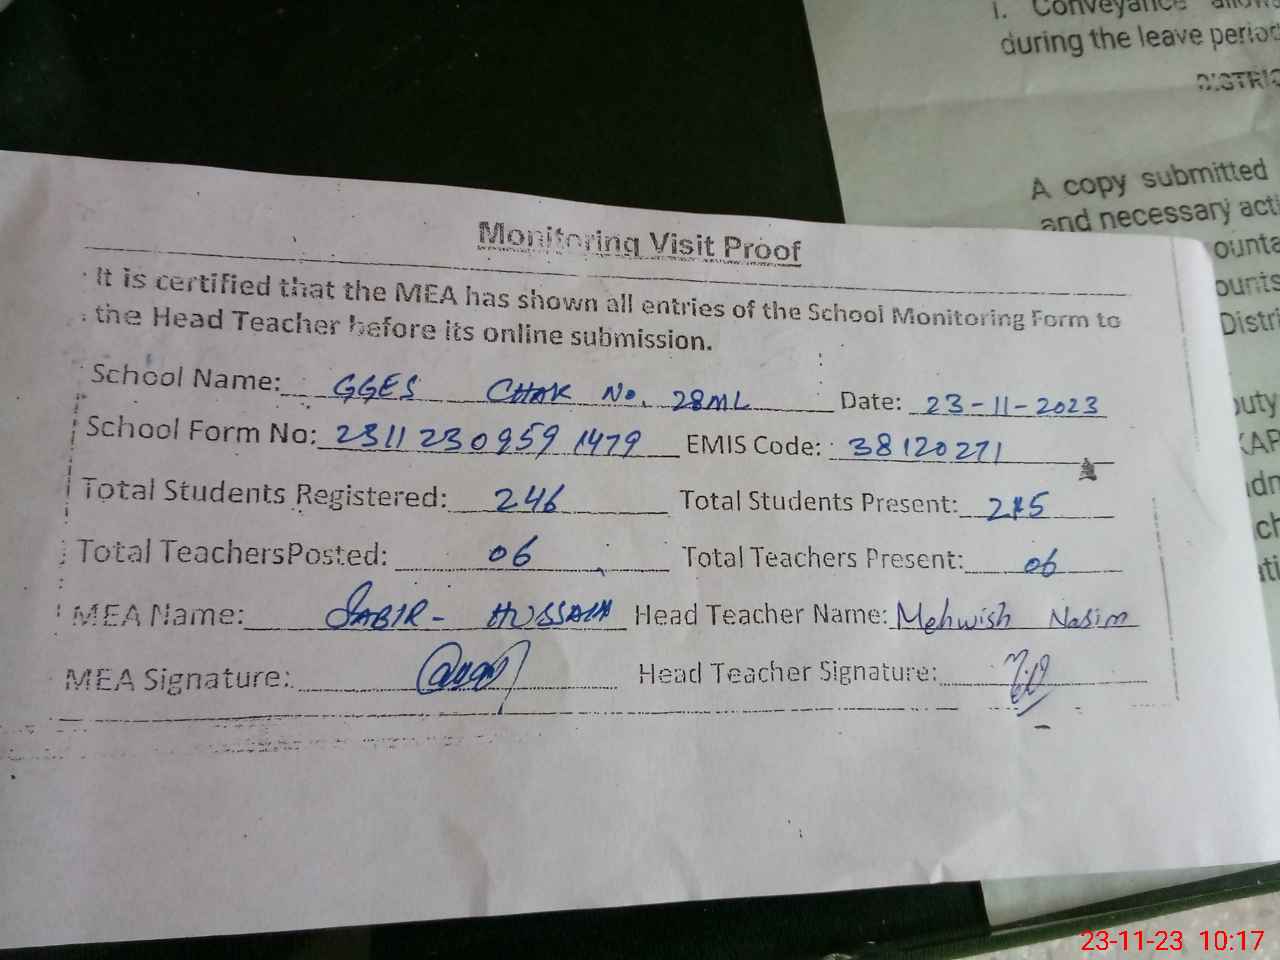 i. Conveyance
during the leave period
A copy submitted
and necessary
Monitoring Visit Proof
It is certified that the MEA has shown all entries of the School Monitoring Form to
the Head Teacher before its online submission.
School Name: GGES CHAK No. 28ML Date: 23-11-2023
School Form No: 2311 230959 1479 EMIS Code: 38120271
Total Students Registered: 246 Total Students Present:
Total Teachers Posted: 06 Total Teachers Present: 06
MEA Name: SABIR - HUSSAIN Head Teacher Name: Mehwish Nasim
MEA Signature: Head Teacher Signature:
23-11-23 10:17